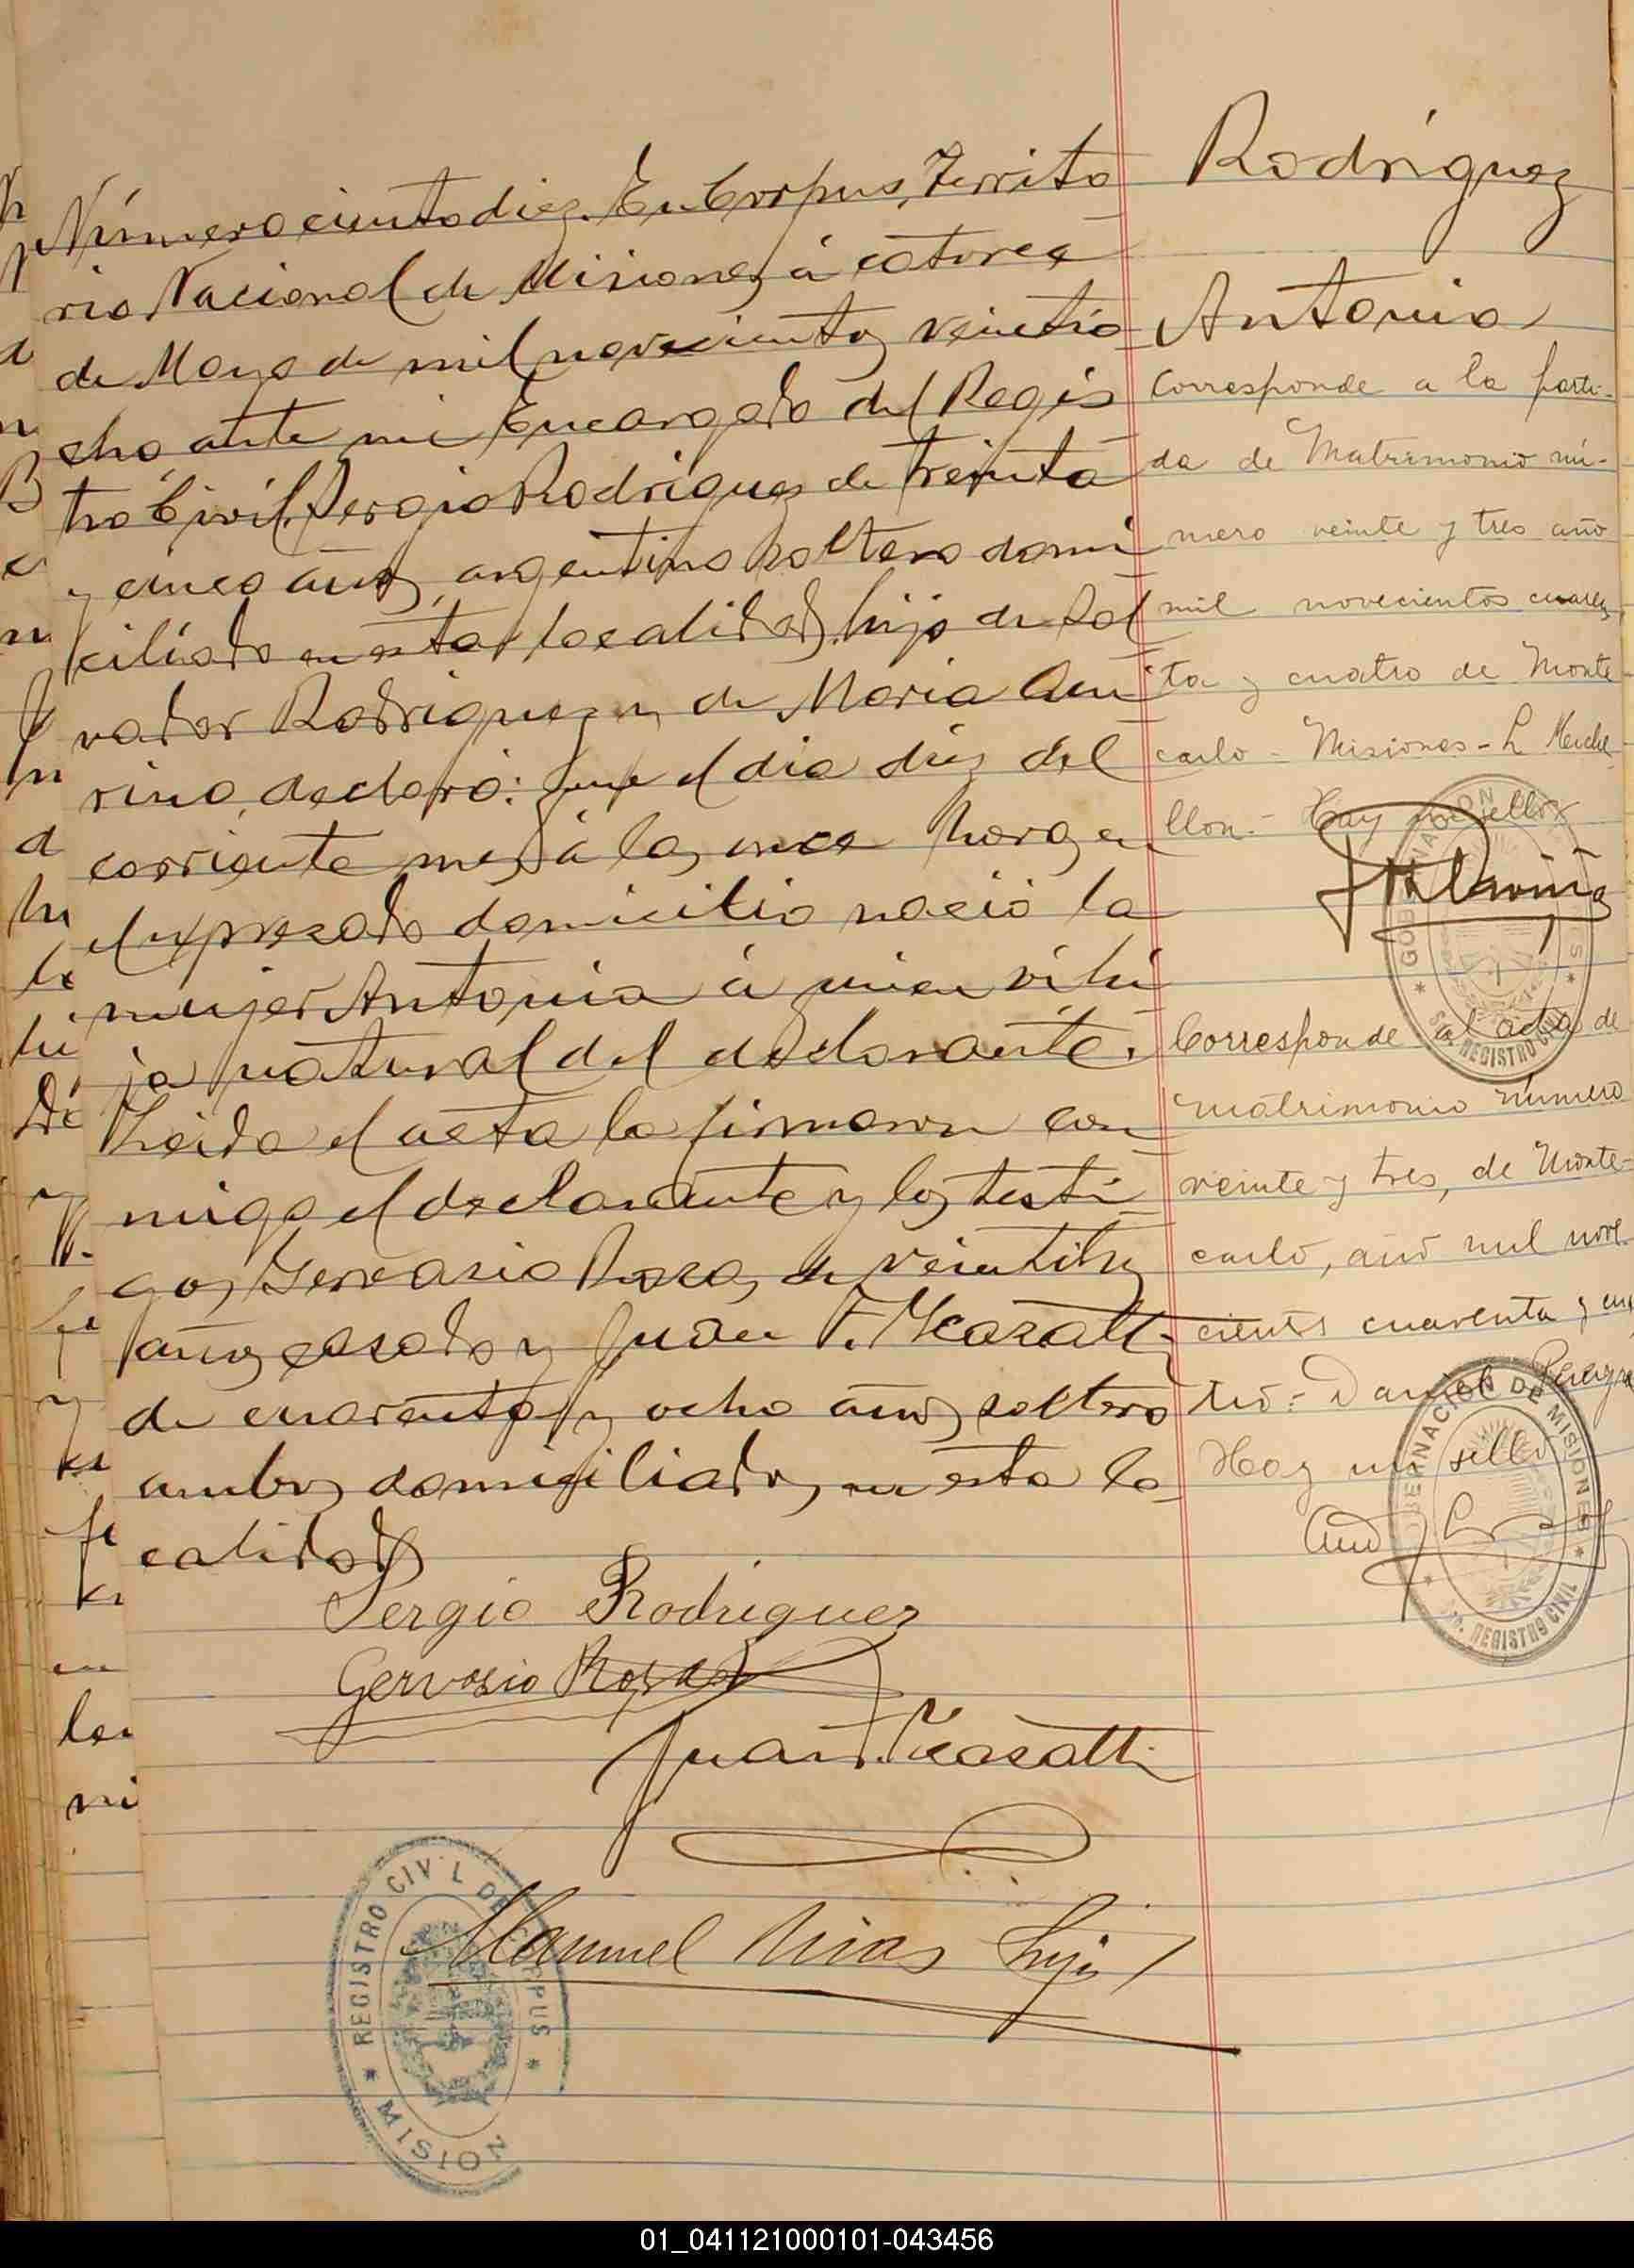 Número ciento diez. En Corpus, Territo
rio Nacional de Misiones, á catorce
de Mayo de mil novecientos veintio
cho, ante mi Encargado del Regis
tro Civil, Sergio Rodriguez de treinta
y cinco años, argentino soltero domi
ciliado en esta localidad, hijo de Sal
vador Rodriguez y de Maria
rino, declaró: Que el dia diez del
corriente mes á las once horas en
el expresado domicilio nació la
mujer Antonia á quien ví hi
ja natural del declarante.
Leida el acta la firmaron con
migo el declarante y los testi
gos, Gervasio Rosas, de veintitres
años, casado y Juan F. Casatti
de cuarenta y ocho años, soltero
ambos domiciliados en esta lo
calidad
Sergio Rodriguez
Gervasio Rosas
Juan F. Casatti
Manuel hijo
REGISTRO CIVIL DE CORPUS
MISION
Rodriguez
Antonia
Corresponde a la parti-
da de Matrimonio nú-
mero veinte y tres año
mil novecientos cuaren
ta y cuatro de Monte
carlo - Misiones - L.
llon.- Hay un sello
GOBERNACION
REGISTRO CIVIL
Corresponde al acta de
matrimonio número
veinte y tres, de Monte-
carlo, año mil nove
cientos cuarenta y cua
tro.- Daniel
Hay un sello
GOBERNACION DE MISIONES
REGISTRO CIVIL
01_041121000101-043456